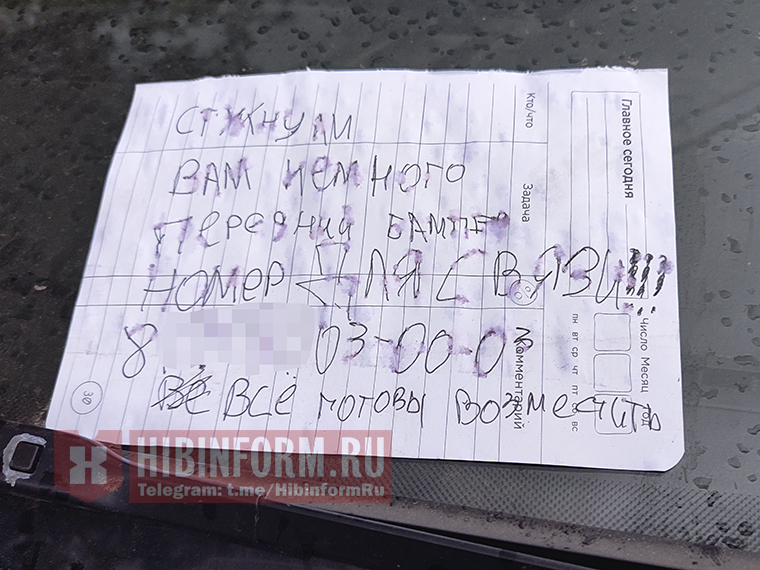 СТУКНУЛИ
ВАМ НЕМНОГО
ПЕРЕДНИЙ БАМПЕР
НОМЕР ДЛЯ СВЯЗИ!!!
8 03-00-0
ВСЁ ГОТОВЫ ВОЗМЕСТИТЬ
Кто/что
Задача
Комментарий
Главное сегодня
Число Месяц Год
пн вт ср чт пт сб вс
30
HIBINFORM.RU
Telegram: t.me/HibinformRu